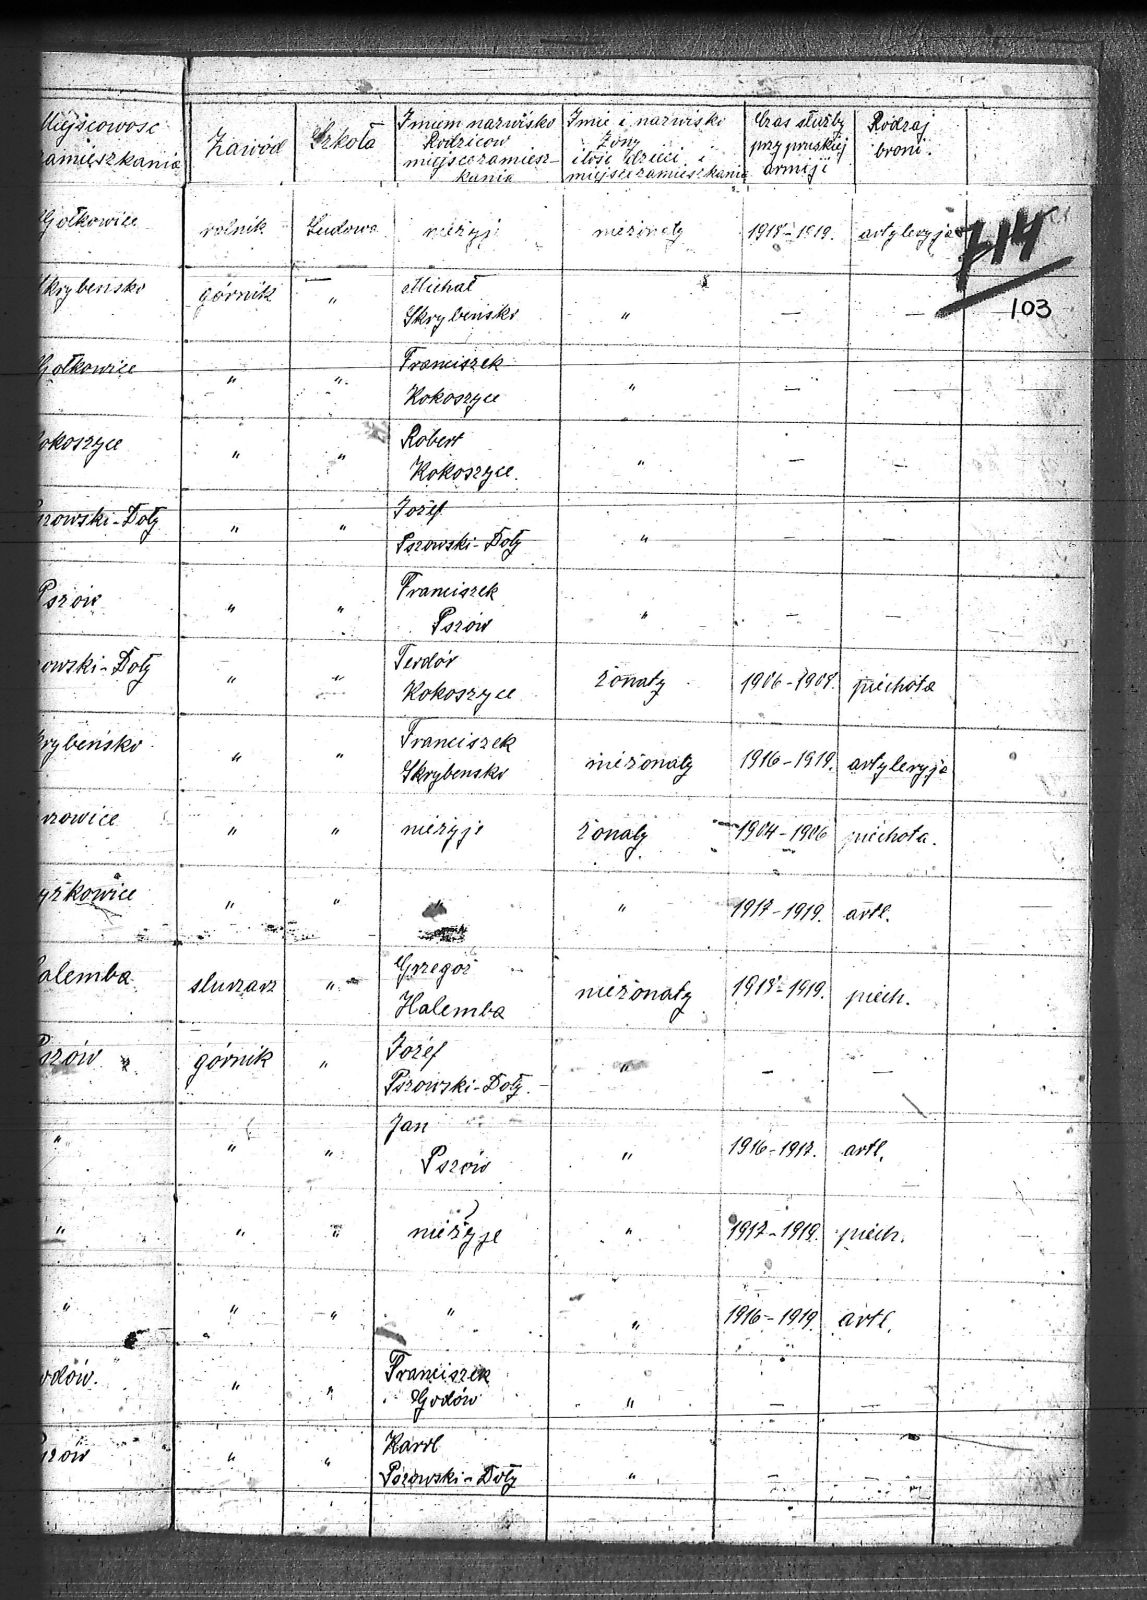 Miejscowość zamieszkania Zawód Szkoła Imiem nazwisko Rodziców miejscezamieszkania Imie i nazwisko Żony ilość dzieci i miejscezamieszkania Czas służby przy pruskiej armiji Rodzaj broni.
714
103
Gołkowice rolnik Ludowa nieżyje nieżonaty 1918-1919. artyleryja
Skrybeńsko górnik " Michał Skrybeńsko " — —
Gołkowice " " Franciszek Kokoszyce " — —
Kokoszyce " " Robert Kokoszyce. " — —
Pszowski-Doły " " Józef Pszowski-Doły " — —
Pszów " " Franciszek Pszów " — —
Pszowski-Doły " " Kokoszyce żonaty 1906-1908. piechota
Skrybeńsko " " Franciszek Skrybensko nieżonaty 1916-1919. artyleryja
" " nieżyje żonaty 1904-1906 piechota.
" " " " 1917-1919. artl.
Halemba slusarz " Grzegoż Halemba nieżonaty 1918-1919. piech.
Pszów górnik " Józef Pszowski-Doły. " — —
" " " Jan Pszów " 1916-1917. artl.
" " " nieżyje " 1917-1919. piech.
" " " " " 1916-1919. artl.
Godów. " " Franciszek Godów " — —
Pszów " " Karol Pszowski-Doły " — —